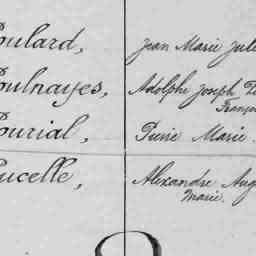 Poulard, Jean Marie Jule
Poulnayes, Adolphe Joseph
Franço
Pourial, Pierre Marie
Pucelle, Alexandre Aug
Marie.